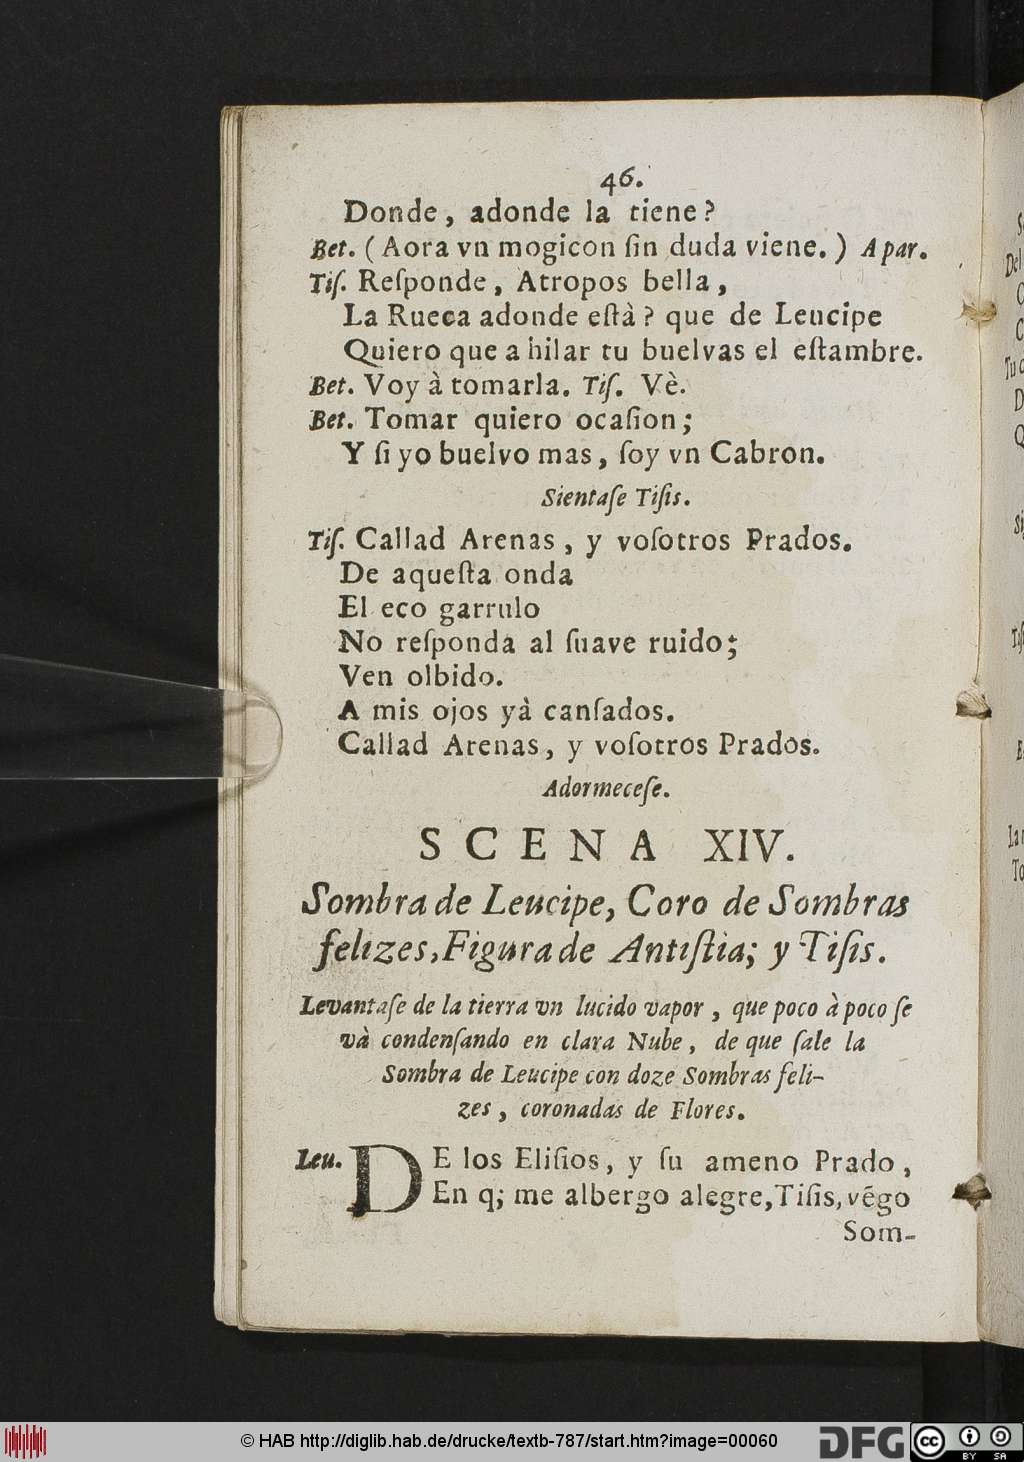 46.
Donde, adonde la tiene?
Bet. (Aora vn mogicon ſin duda viene.) A par.
Tiſ. Reſponde, Atropos bella,
La Rueca adonde eſtà? que de Leucipe
Quiero que a hilar tu buelvas el eſtambre.
Bet. Voy à tomarla. Tiſ. Vè.
Bet. Tomar quiero ocaſion;
Y ſi yo buelvo mas, ſoy vn Cabron.
Sientaſe Tiſis.
Tiſ. Callad Arenas, y voſotros Prados.
De aqueſta onda
El eco garrulo
No reſponda al ſuave ruido;
Ven olbido.
A mis ojos yà canſados.
Callad Arenas, y voſotros Prados.
Adormeceſe.
SCENA XIV.
Sombra de Leucipe, Coro de Sombras
felizes, Figura de Antiſtia; y Tiſis.
Levantaſe de la tierra vn lucido vapor, que poco à poco ſe
và condenſando en clara Nube, de que ſale la
Sombra de Leucipe con doze Sombras feli-
zes, coronadas de Flores.
Leu. DE los Eliſios, y ſu ameno Prado,
En q; me albergo alegre, Tiſis, vẽgo
Som-
© HAB http://diglib.hab.de/drucke/textb-787/start.htm?image=00060
DFG
cc BY SA